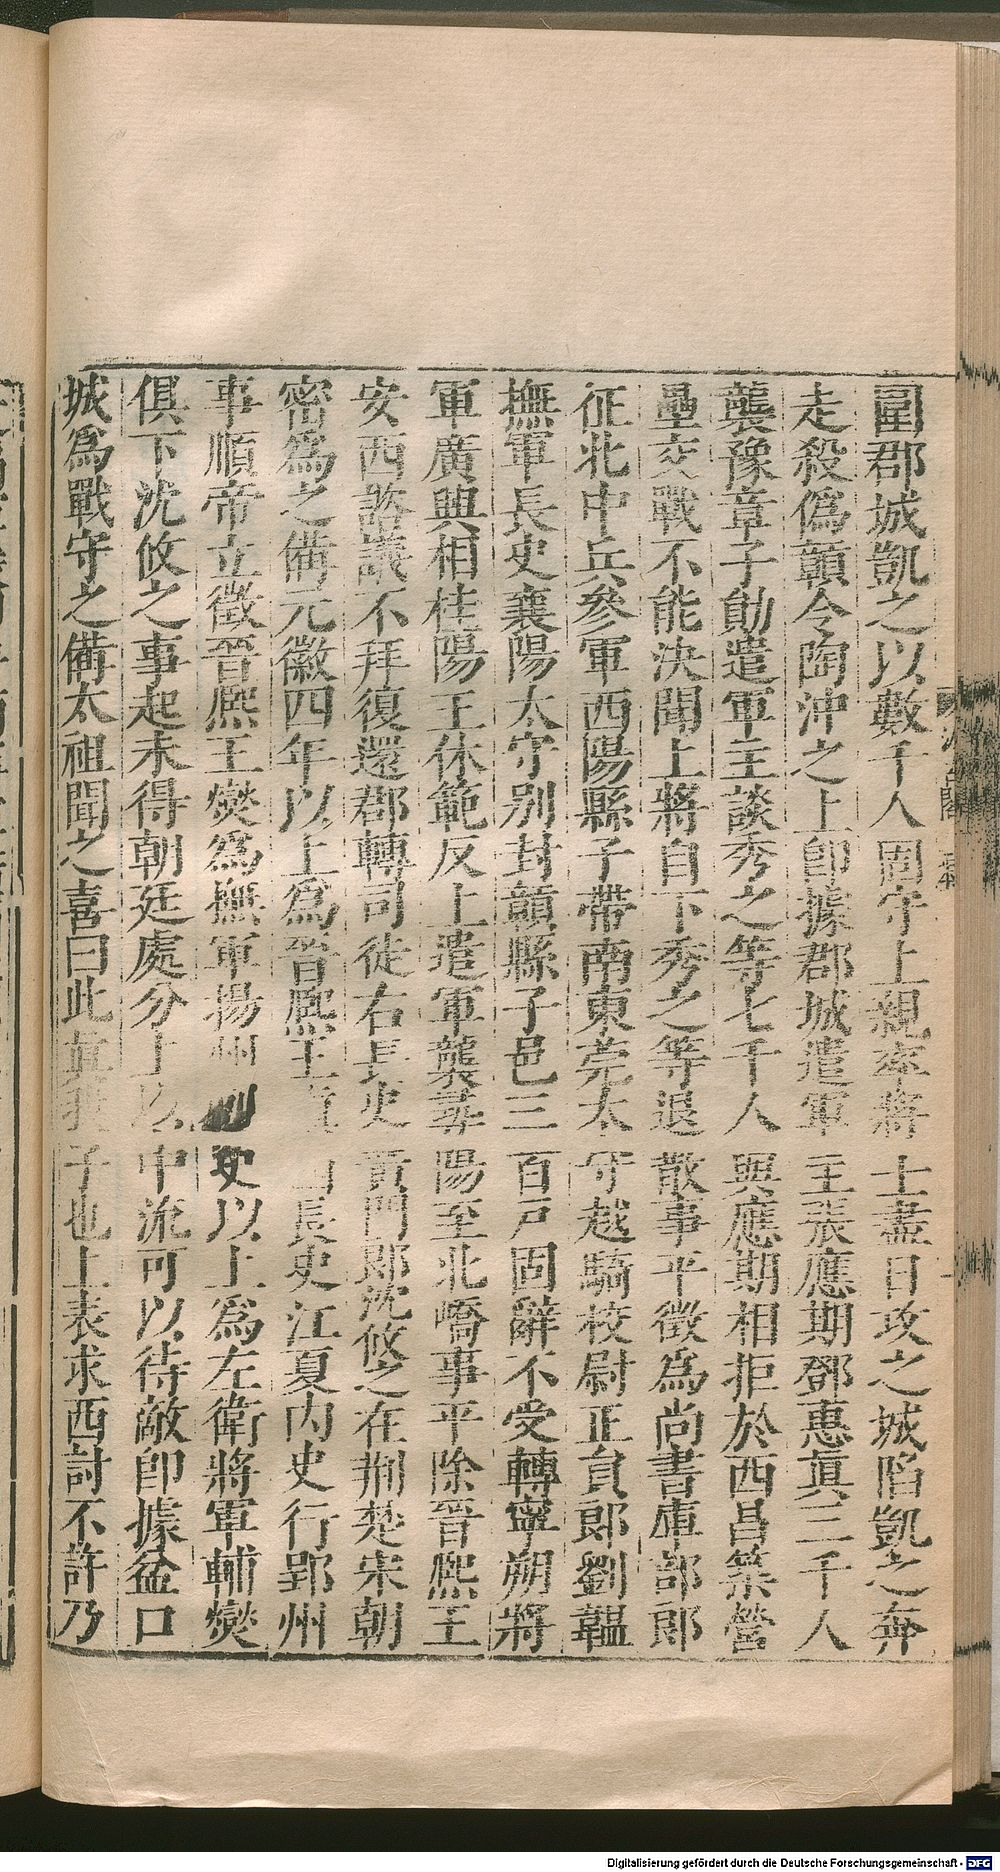 圍郡城凱之以數千人固守上親率將士盡日攻之城陷凱之奔
走殺偽贛令陶沖之上卽據郡城遣軍主張應期鄧惠眞三千人
襲豫章子勛遣軍主談秀之等七千人與應期相拒於西昌築營
壘交戰不能決聞上將自下秀之等退散事平徵爲尚書庫部郎
征北中兵參軍西陽縣子帶南東莞太守越騎校尉正員郎劉韞
撫軍長史襄陽太守別封贛縣子邑三百戸固辭不受轉寧朔將
軍廣興相桂陽王休範反上遣軍襲尋陽至北嶠事平除晉熙王
安西諮議不拜復還郡轉司徒右長史黃門郎沈攸之在荆楚宋朝
密爲之備元徽四年以上爲晉熙王長史江夏内史行郢州
事順帝立徵晉熙王燮爲撫軍揚州刺史以上爲左衛將軍輔燮
俱下沈攸之事起未得朝廷處分上以中流可以待敵卽據盆口
城爲戰守之備太祖聞之喜曰此眞我子也上表求西討不許乃
Digitalisierung gefördert durch die Deutsche Forschungsgemeinschaft - DFG